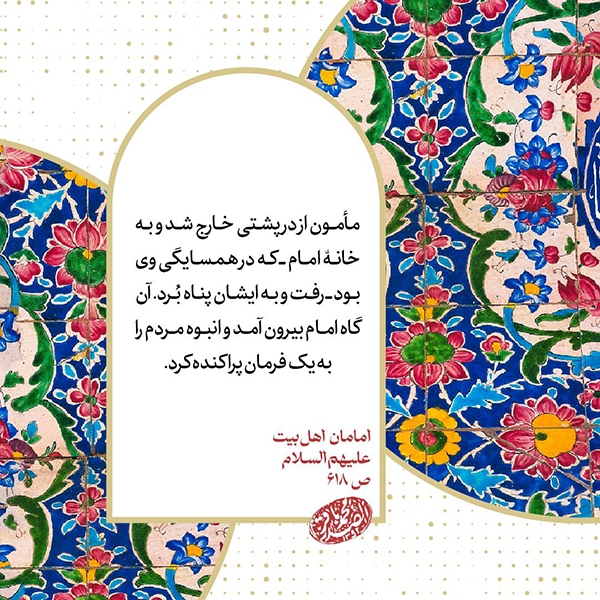 مأمون از در پشتی خارج شد و به
خانهٔ امام ـ که در همسایگی وی
بود ـ رفت و به ایشان پناه بُرد. آن
گاه امام بیرون آمد و انبوه مردم را
به یک فرمان پراکنده کرد.
امامان اهل بیت
علیهم السلام
ص ۶۱۸